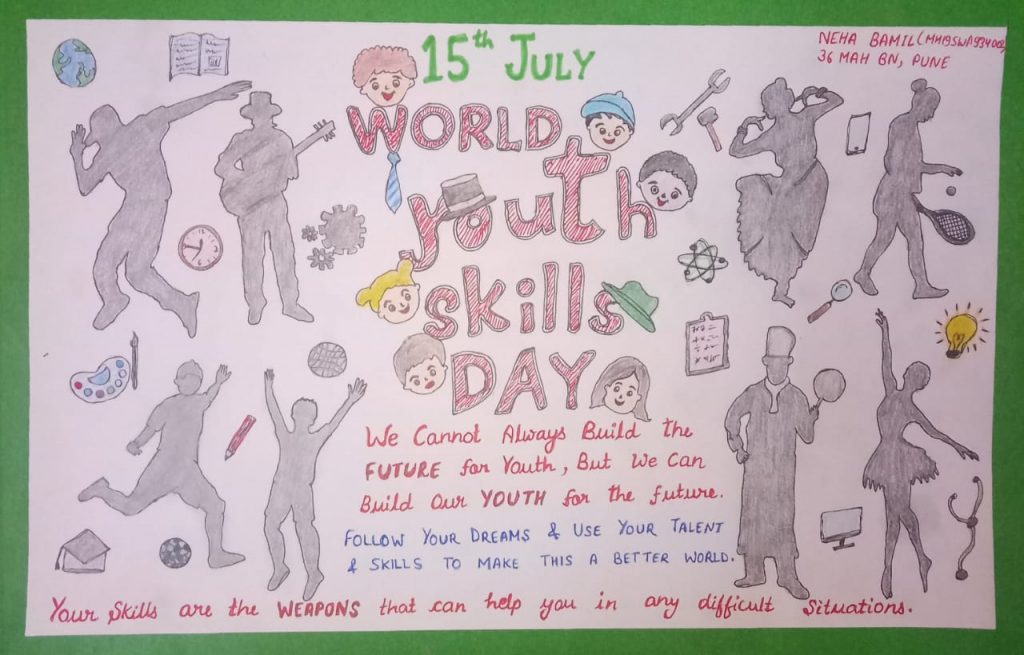 15th JULY
NEHA BAMIL (MH19SWA934002)
36 MAH BN, PUNE
WORLD
youth
skills
DAY
We Cannot Always Build the
FUTURE for Youth, But We Can
Build Our YOUTH for the future.
FOLLOW YOUR DREAMS & USE YOUR TALENT
& SKILLS TO MAKE THIS A BETTER WORLD.
Your Skills are the WEAPONS that can help you in any difficult Situations.